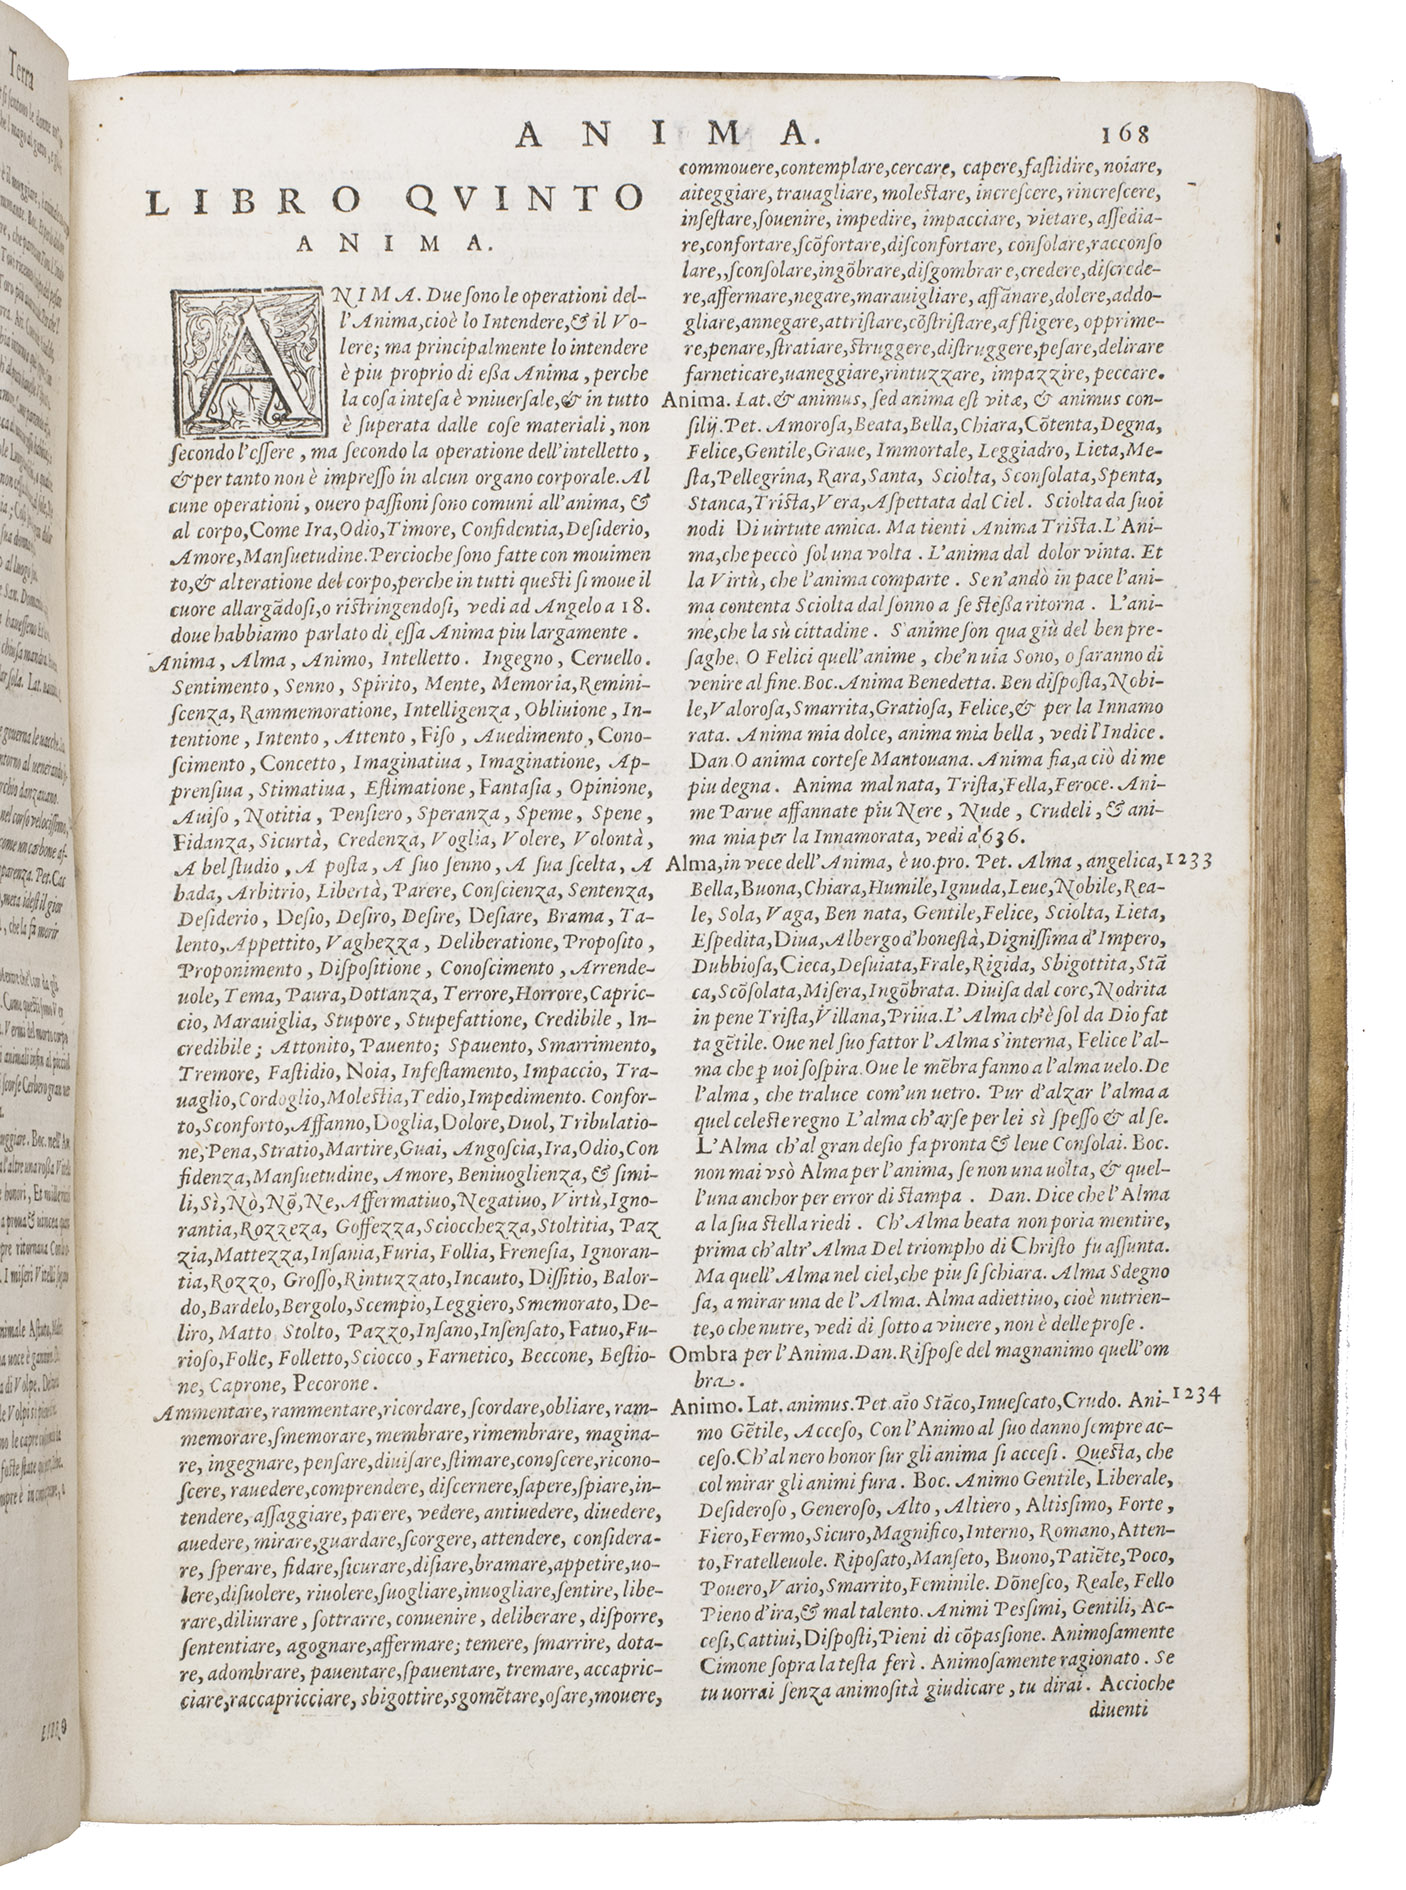 ANIMA.
168
LIBRO QVINTO
ANIMA.
ANIMA. Due ſono le operationi del-
l'Anima, cioè lo Intendere, & il Vo-
lere; ma principalmente lo intendere
è piu proprio di eſſa Anima, perche
la coſa inteſa è vniuerſale, & in tutto
è ſuperata dalle coſe materiali, non
ſecondo l'eſſere, ma ſecondo la operatione dell'intelletto,
& per tanto non è impreſſo in alcun organo corporale. Al
cune operationi, ouero paſſioni ſono comuni all'anima, &
al corpo, Come Ira, Odio, Timore, Confidentia, Deſiderio,
Amore, Manſuetudine. Percioche ſono fatte con mouimen
to, & alteratione del corpo, perche in tutti queſti ſi moue il
cuore allargādoſi, o riſtringendoſi, vedi ad Angelo a 18.
doue habbiamo parlato di eſſa Anima piu largamente.
Anima, Alma, Animo, Intelletto. Ingegno, Ceruello.
Sentimento, Senno, Spirito, Mente, Memoria, Remini-
ſcenza, Rammemoratione, Intelligenza, Obliuione, In-
tentione, Intento, Attento, Fiſo, Auedimento, Cono-
ſcimento, Concetto, Imaginatiua, Imaginatione, Ap-
prenſiua, Stimatiua, Eſtimatione, Fantaſia, Opinione,
Auiſo, Notitia, Penſiero, Speranza, Speme, Spene,
Fidanza, Sicurtà, Credenza, Voglia, Volere, Volontà,
A bel ſtudio, A poſta, A ſuo ſenno, A ſua ſcelta, A
bada, Arbitrio, Libertà, Parere, Conſcienza, Sentenza,
Deſiderio, Deſio, Deſiro, Deſire, Deſiare, Brama, Ta-
lento, Appettito, Vaghezza, Deliberatione, Propoſito,
Proponimento, Diſpoſitione, Conoſcimento, Arrende-
uole, Tema, Paura, Dottanza, Terrore, Horrore, Capric-
cio, Marauiglia, Stupore, Stupefattione, Credibile, In-
credibile; Attonito, Pauento; Spauento, Smarrimento,
Tremore, Faſtidio, Noia, Infeſtamento, Impaccio, Tra-
uaglio, Cordoglio, Moleſtia, Tedio, Impedimento. Confor-
to, Sconforto, Affanno, Doglia, Dolore, Duol, Tribulatio-
ne, Pena, Stratio, Martire, Guai, Angoſcia, Ira, Odio, Con
fidenza, Manſuetudine, Amore, Beniuoglienza, & ſimi-
li, Sì, Nò, Nō, Ne, Affermatiuo, Negatiuo, Virtù, Igno-
rantia, Rozzeza, Goffezza, Sciocchezza, Stoltitia, Paz
zia, Mattezza, Inſania, Furia, Follia, Freneſia, Ignoran-
tia, Rozzo, Groſſo, Rintuzzato, Incauto, Diſſitio, Balor-
do, Bardelo, Bergolo, Scempio, Leggiero, Smemorato, De-
liro, Matto Stolto, Pazzo, Inſano, Inſenſato, Fatuo, Fu-
rioſo, Folle, Folletto, Sciocco, Farnetico, Beccone, Beſtio-
ne, Caprone, Pecorone.
Ammentare, rammentare, ricordare, ſcordare, obliare, ram-
memorare, ſmemorare, membrare, rimembrare, magina-
re, ingegnare, penſare, diuiſare, ſtimare, conoſcere, ricono-
ſcere, rauedere, comprendere, diſcernere, ſapere, ſpiare, in-
tendere, aſſaggiare, parere, vedere, antiuedere, diuedere,
auedere, mirare, guardare, ſcorgere, attendere, conſidera-
re, ſperare, fidare, ſicurare, diſiare, bramare, appetire, uo-
lere, diſuolere, riuolere, ſuogliare, inuogliare, ſentire, libe-
rare, diliurare, ſottrarre, conuenire, deliberare, diſporre,
ſententiare, agognare, affermare; temere, ſmarrire, dota-
re, adombrare, pauentare, ſpauentare, tremare, accapric-
ciare, raccapricciare, sbigottire, sgomētare, oſare, mouere,
commouere, contemplare, cercare, capere, faſtidire, noiare,
aiteggiare, trauagliare, moleſtare, increſcere, rincreſcere,
infeſtare, ſouenire, impedire, impacciare, vietare, aſſedia-
re, confortare, ſcōfortare, diſconfortare, conſolare, racconſo
lare,, ſconſolare, ingōbrare, diſgombrare, credere, diſcrede-
re, affermare, negare, marauigliare, affānare, dolere, addo-
gliare, annegare, attriſtare, cōſtriſtare, affligere, opprime-
re, penare, ſtratiare, ſtruggere, diſtruggere, peſare, delirare
farneticare, uaneggiare, rintuzzare, impazzire, peccare.
Anima. Lat. & animus, ſed anima eſt vitæ, & animus con-
ſilij. Pet. Amoroſa, Beata, Bella, Chiara, Cōtenta, Degna,
Felice, Gentile, Graue, Immortale, Leggiadro, Lieta, Me-
ſta, Pellegrina, Rara, Santa, Sciolta, Sconſolata, Spenta,
Stanca, Triſta, Vera, Aſpettata dal Ciel. Sciolta da ſuoi
nodi Di uirtute amica. Ma tienti Anima Triſta. L'Ani-
ma, che peccò ſol una volta. L'anima dal dolor vinta. Et
la Virtù, che l'anima comparte. Se n'andò in pace l'ani-
ma contenta Sciolta dal ſonno a ſe ſteſſa ritorna. L'ani-
me, che la sù cittadine. S'anime ſon qua giù del ben pre-
ſaghe. O Felici quell'anime, che'n uia Sono, o ſaranno di
venire al fine. Boc. Anima Benedetta. Ben diſpoſta, Nobi-
le, Valoroſa, Smarrita, Gratioſa, Felice, & per la Innamo
rata. Anima mia dolce, anima mia bella, vedi l'Indice.
Dan. O anima corteſe Mantouana. Anima fia, a ciò di me
piu degna. Anima mal nata, Triſta, Fella, Feroce. Ani-
me Parue affannate piu Nere, Nude, Crudeli, & ani-
ma mia per la Innamorata, vedi a 636.
Alma, in vece dell'Anima, è uo. pro. Pet. Alma, angelica, 1233
Bella, Buona, Chiara, Humile, Ignuda, Leue, Nobile, Rea-
le, Sola, Vaga, Ben nata, Gentile, Felice, Sciolta, Lieta,
Eſpedita, Diua, Albergo d'honeſtà, Digniſſima d'Impero,
Dubbioſa, Cieca, Deſuiata, Frale, Rigida, Sbigottita, Stā
ca, Scōſolata, Miſera, Ingōbrata. Diuiſa dal core, Nodrita
in pene Triſta, Villana, Priua. L'Alma ch'è ſol da Dio fat
ta gētile. Oue nel ſuo fattor l'Alma s'interna, Felice l'al-
ma che ꝑ uoi ſoſpira. Oue le mēbra fanno a l'alma uelo. De
l'alma, che traluce com'un uetro. Pur d'alzar l'alma a
quel celeſte regno L'alma ch'arſe per lei sì ſpeſſo & al ſe.
L'Alma ch'al gran deſio fa pronta & leue Conſolai. Boc.
non mai vsò Alma per l'anima, ſe non una uolta, & quel-
l'una anchor per error di ſtampa. Dan. Dice che l'Alma
a la ſua ſtella riedi. Ch'Alma beata non poria mentire,
prima ch'altr'Alma Del triompho di Chriſto fu aſſunta.
Ma quell'Alma nel ciel, che piu ſi ſchiara. Alma Sdegno
ſa, a mirar una de l'Alma. Alma adiettiuo, cioè nutrien-
te, o che nutre, vedi di ſotto a viuere, non è delle proſe.
Ombra per l'Anima. Dan. Riſpoſe del magnanimo quell'om
bra.
Animo. Lat. animus. Pet. aīo Stāco, Inueſcato, Crudo. Ani- 1234
mo Gētile, Acceſo, Con l'Animo al ſuo danno ſempre ac-
ceſo. Ch'al nero honor fur gli anima ſi acceſi. Queſta, che
col mirar gli animi fura. Boc. Animo Gentile, Liberale,
Deſideroſo, Generoſo, Alto, Altiero, Altiſſimo, Forte,
Fiero, Fermo, Sicuro, Magnifico, Interno, Romano, Atten-
to, Fratelleuole. Ripoſato, Manſeto, Buono, Patiēte, Poco,
Pouero, Vario, Smarrito, Feminile. Dōneſco, Reale, Fello
Pieno d'ira, & mal talento. Animi Peſſimi, Gentili, Ac-
ceſi, Cattiui, Diſpoſti, Pieni di cōpaſſione. Animoſamente
Cimone ſopra la teſta ferì. Animoſamente ragionato. Se
tu uorrai ſenza animoſità giudicare, tu dirai. Accioche
diuenti